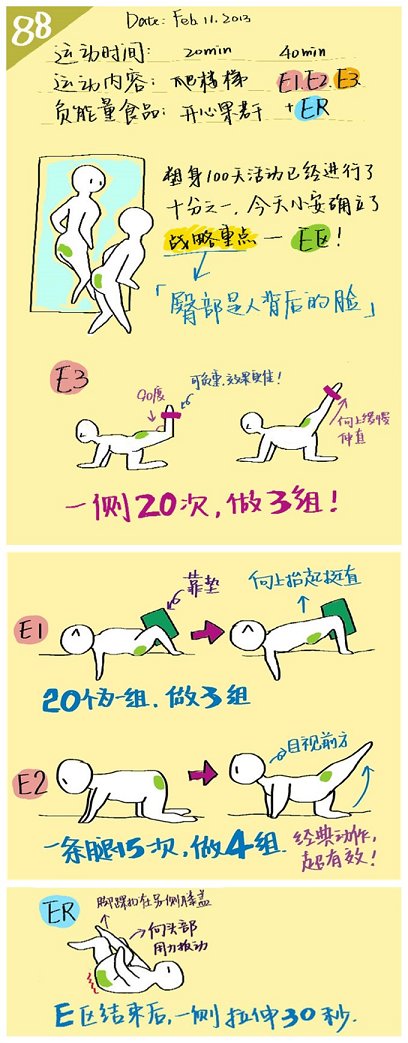 88
Date: Feb. 11. 2013
运动时间: 20min 40min
运动内容: 爬楼梯 E1. E2. E3.
负能量食品: 开心果若干 + ER
塑身100天活动已经进行了
十分之一, 今天小安确立了
战略重点 — E区!
「臀部是人背后的脸」
E3
90度
可负重, 效果更佳!
向上缓慢
伸直
一侧20次, 做3组!
E1
靠垫
向上抬起挺直
20个为一组. 做3组
E2
目视前方
一条腿15次, 做4组.
经典动作,
超有效!
ER
脚踝扣在另侧膝盖
向头部
用力扳动
E区结束后, 一侧拉伸30秒.